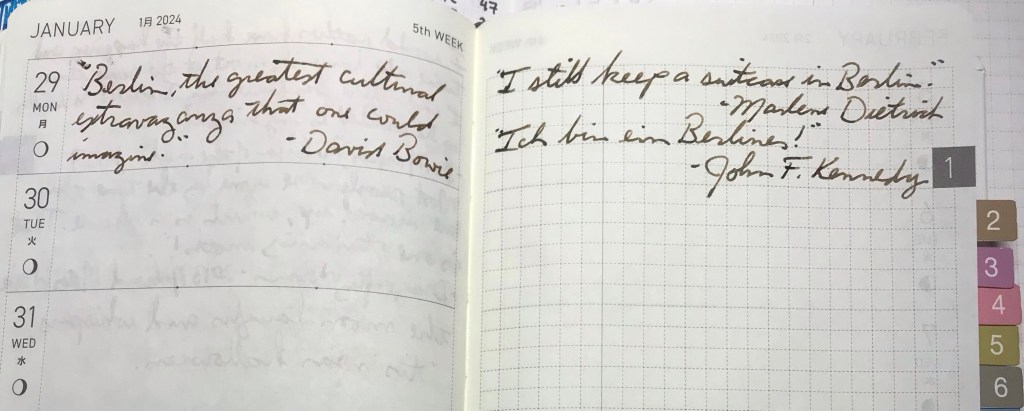 47
JANUARY 1月 2024 5th WEEK
29
MON
月
"Berlin, the greatest cultural
extravaganza that one could
imagine."
- David Bowie
30
TUE
火
31
WED
水
"I still keep a suitcase in Berlin."
- Marlene Dietrich
"Ich bin ein Berliner!"
- John F. Kennedy
1
2
3
4
5
6